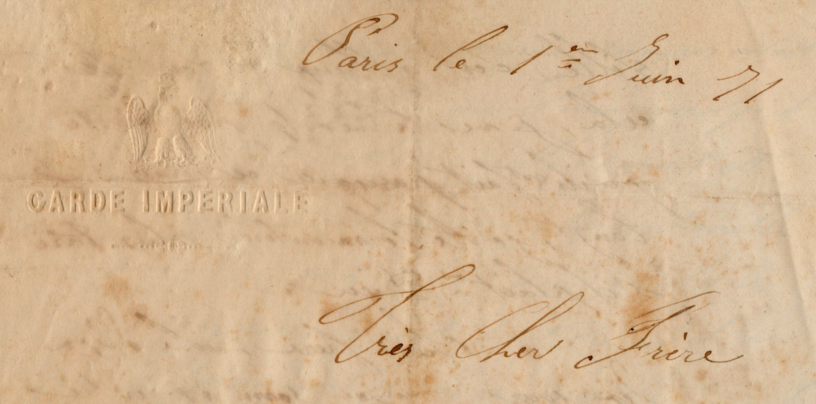 Paris le 1er Juin 71
GARDE IMPÉRIALE
Très Cher Frère